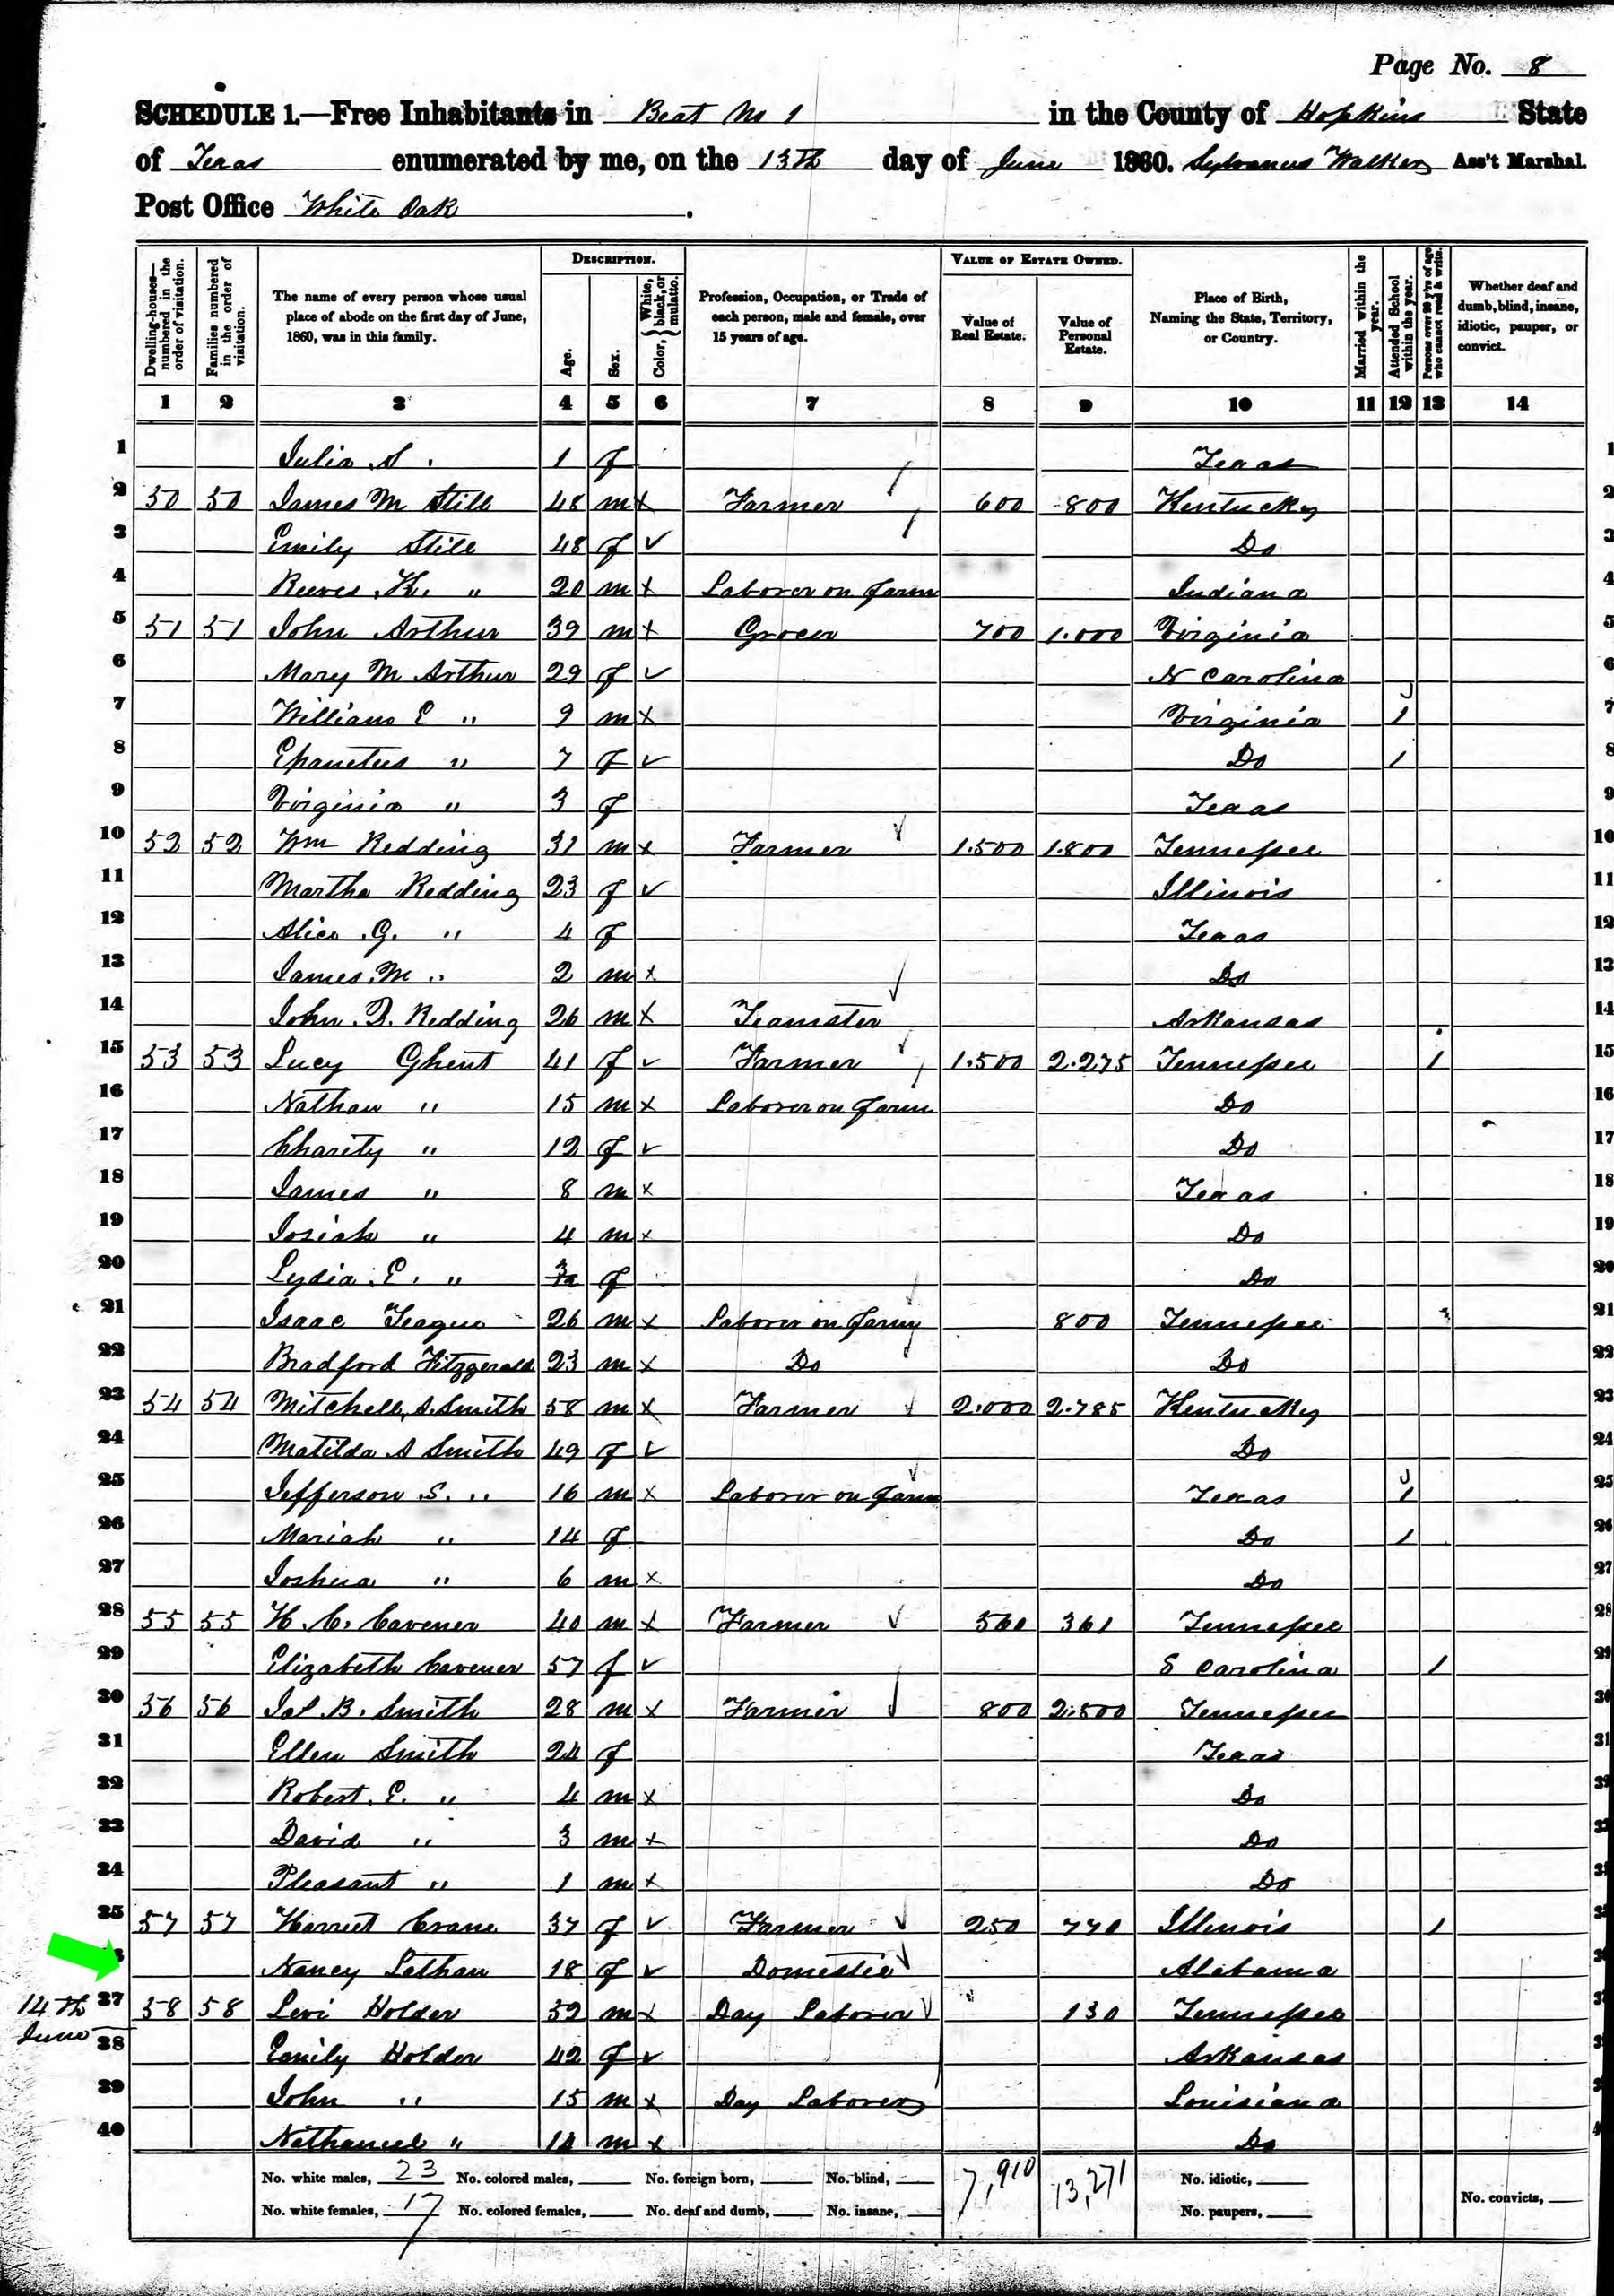 Page No. 8
SCHEDULE 1.—Free Inhabitants in Beat No 1 in the County of Hopkins State
of Texas enumerated by me, on the 13th day of June 1860. Sylvanus Walker Ass't Marshal.
Post Office White Oak.
Dwelling-houses—numbered in the order of visitation. Families numbered in the order of visitation. The name of every person whose usual place of abode on the first day of June, 1860, was in this family. DESCRIPTION. Age. Sex. Color, { White, black, or mulatto. Profession, Occupation, or Trade of each person, male and female, over 15 years of age. VALUE OF ESTATE OWNED. Value of Real Estate. Value of Personal Estate. Place of Birth, Naming the State, Territory, or Country. Married within the year. Attended School within the year. Persons over 20 y'rs of age who cannot read & write. Whether deaf and dumb, blind, insane, idiotic, pauper, or convict.
1 2 3 4 5 6 7 8 9 10 11 12 13 14
1 Julia A. 1 f Texas 1
2 50 50 James M Still 48 m x Farmer 600 800 Kentucky 2
3 Emily Still 48 f ✓ Do 3
4 Reeves. H. " 20 m x Laborer on farm Indiana 4
5 51 51 John Arthur 39 m x Grocer 700 1.000 Virginia 5
6 Mary M Arthur 29 f ✓ N Carolina 6
7 William E " 9 m x Virginia 1 7
8 Epanetus " 7 f ✓ Do 1 8
9 Virginia " 3 f Texas 9
10 52 52 Wm Redding 31 m x Farmer 1.500 1.800 Tennessee 10
11 Martha Redding 23 f ✓ Illinois 11
12 Alice. G. " 4 f Texas 12
13 James. M " 2 m x Do 13
14 John. D. Redding 26 m x Teamster Arkansas 14
15 53 53 Lucy Ghent 41 f ✓ Farmer 1.500 2.275 Tennessee 1 15
16 Nathan " 15 m x Laborer on farm Do 16
17 Charity " 12 f ✓ Do 17
18 James " 8 m x Texas 18
19 Josiah " 4 m x Do 19
20 Lydia. E. " 3/12 f Do 20
21 Isaac Teague 26 m x Laborer on farm 800 Tennessee 21
22 Bradford Fitzgerald 23 m x Do Do 22
23 54 54 Mitchell, S. Smith 58 m x Farmer 2.000 2.785 Kentucky 23
24 Matilda A Smith 49 f ✓ Do 24
25 Jefferson. S. " 16 m x Laborer on farm Texas 1 25
26 Mariah " 14 f Do 1 26
27 Joshua " 6 m x Do 27
28 55 55 H. C. Cavener 40 m x Farmer 560 361 Tennessee 28
29 Elizabeth Cavener 57 f ✓ S Carolina 1 29
30 56 56 Js. B. Smith 28 m x Farmer 800 2.500 Tennessee 30
31 Ellen Smith 24 f Texas 31
32 Robert. E. " 4 m x Do
33 David " 3 m x Do
34 Pleasant " 1 m x Do
35 57 57 Harriet Crane 37 f ✓ Farmer 250 770 Illinois 1
Nancy Lathan 18 f ✓ Domestic Alabama
14th June 37 58 58 Levi Holder 52 m x Day Laborer 130 Tennessee
38 Emily Holder 42 f ✓ Arkansas
39 John " 15 m x Day Laborer Louisiana
40 Nathaniel " 14 m x Do
No. white males, 23 No. colored males, No. foreign born, No. blind, 7,910 13,271 No. idiotic,
No. white females, 17 No. colored females, No. deaf and dumb, No. insane, No. paupers, No. convicts,